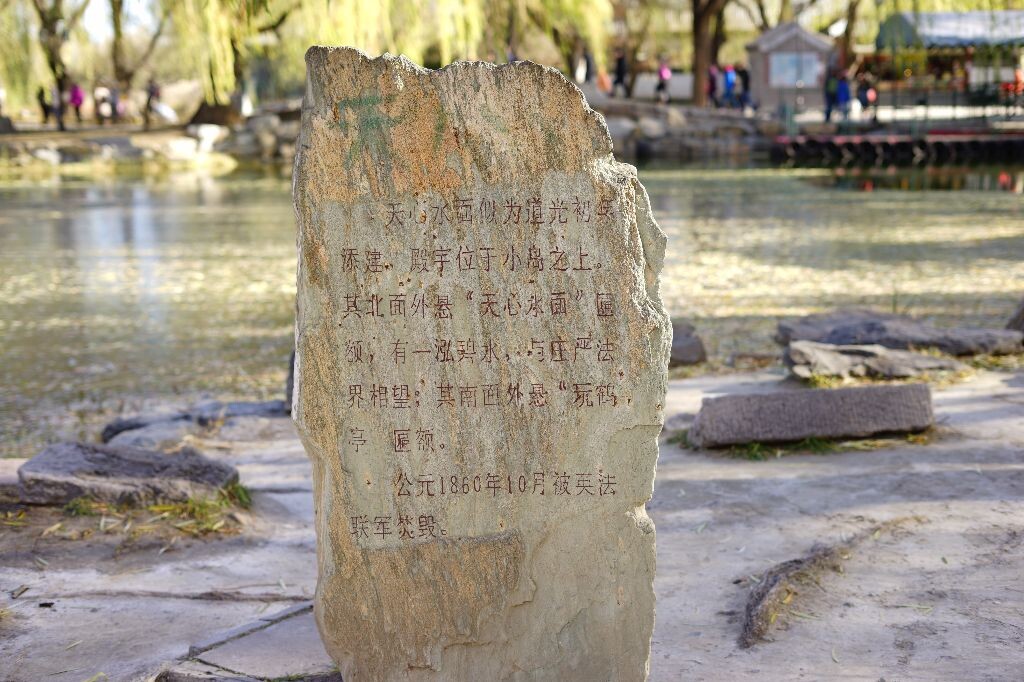 天心水面似为道光初年
添建。殿宇位于小岛之上。
其北面外悬“天心水面”匾
额，有一泓碧水，与庄严法
界相望；其南面外悬“玩鹤
亭 匾额。
公元1860年10月被英法
联军焚毁。